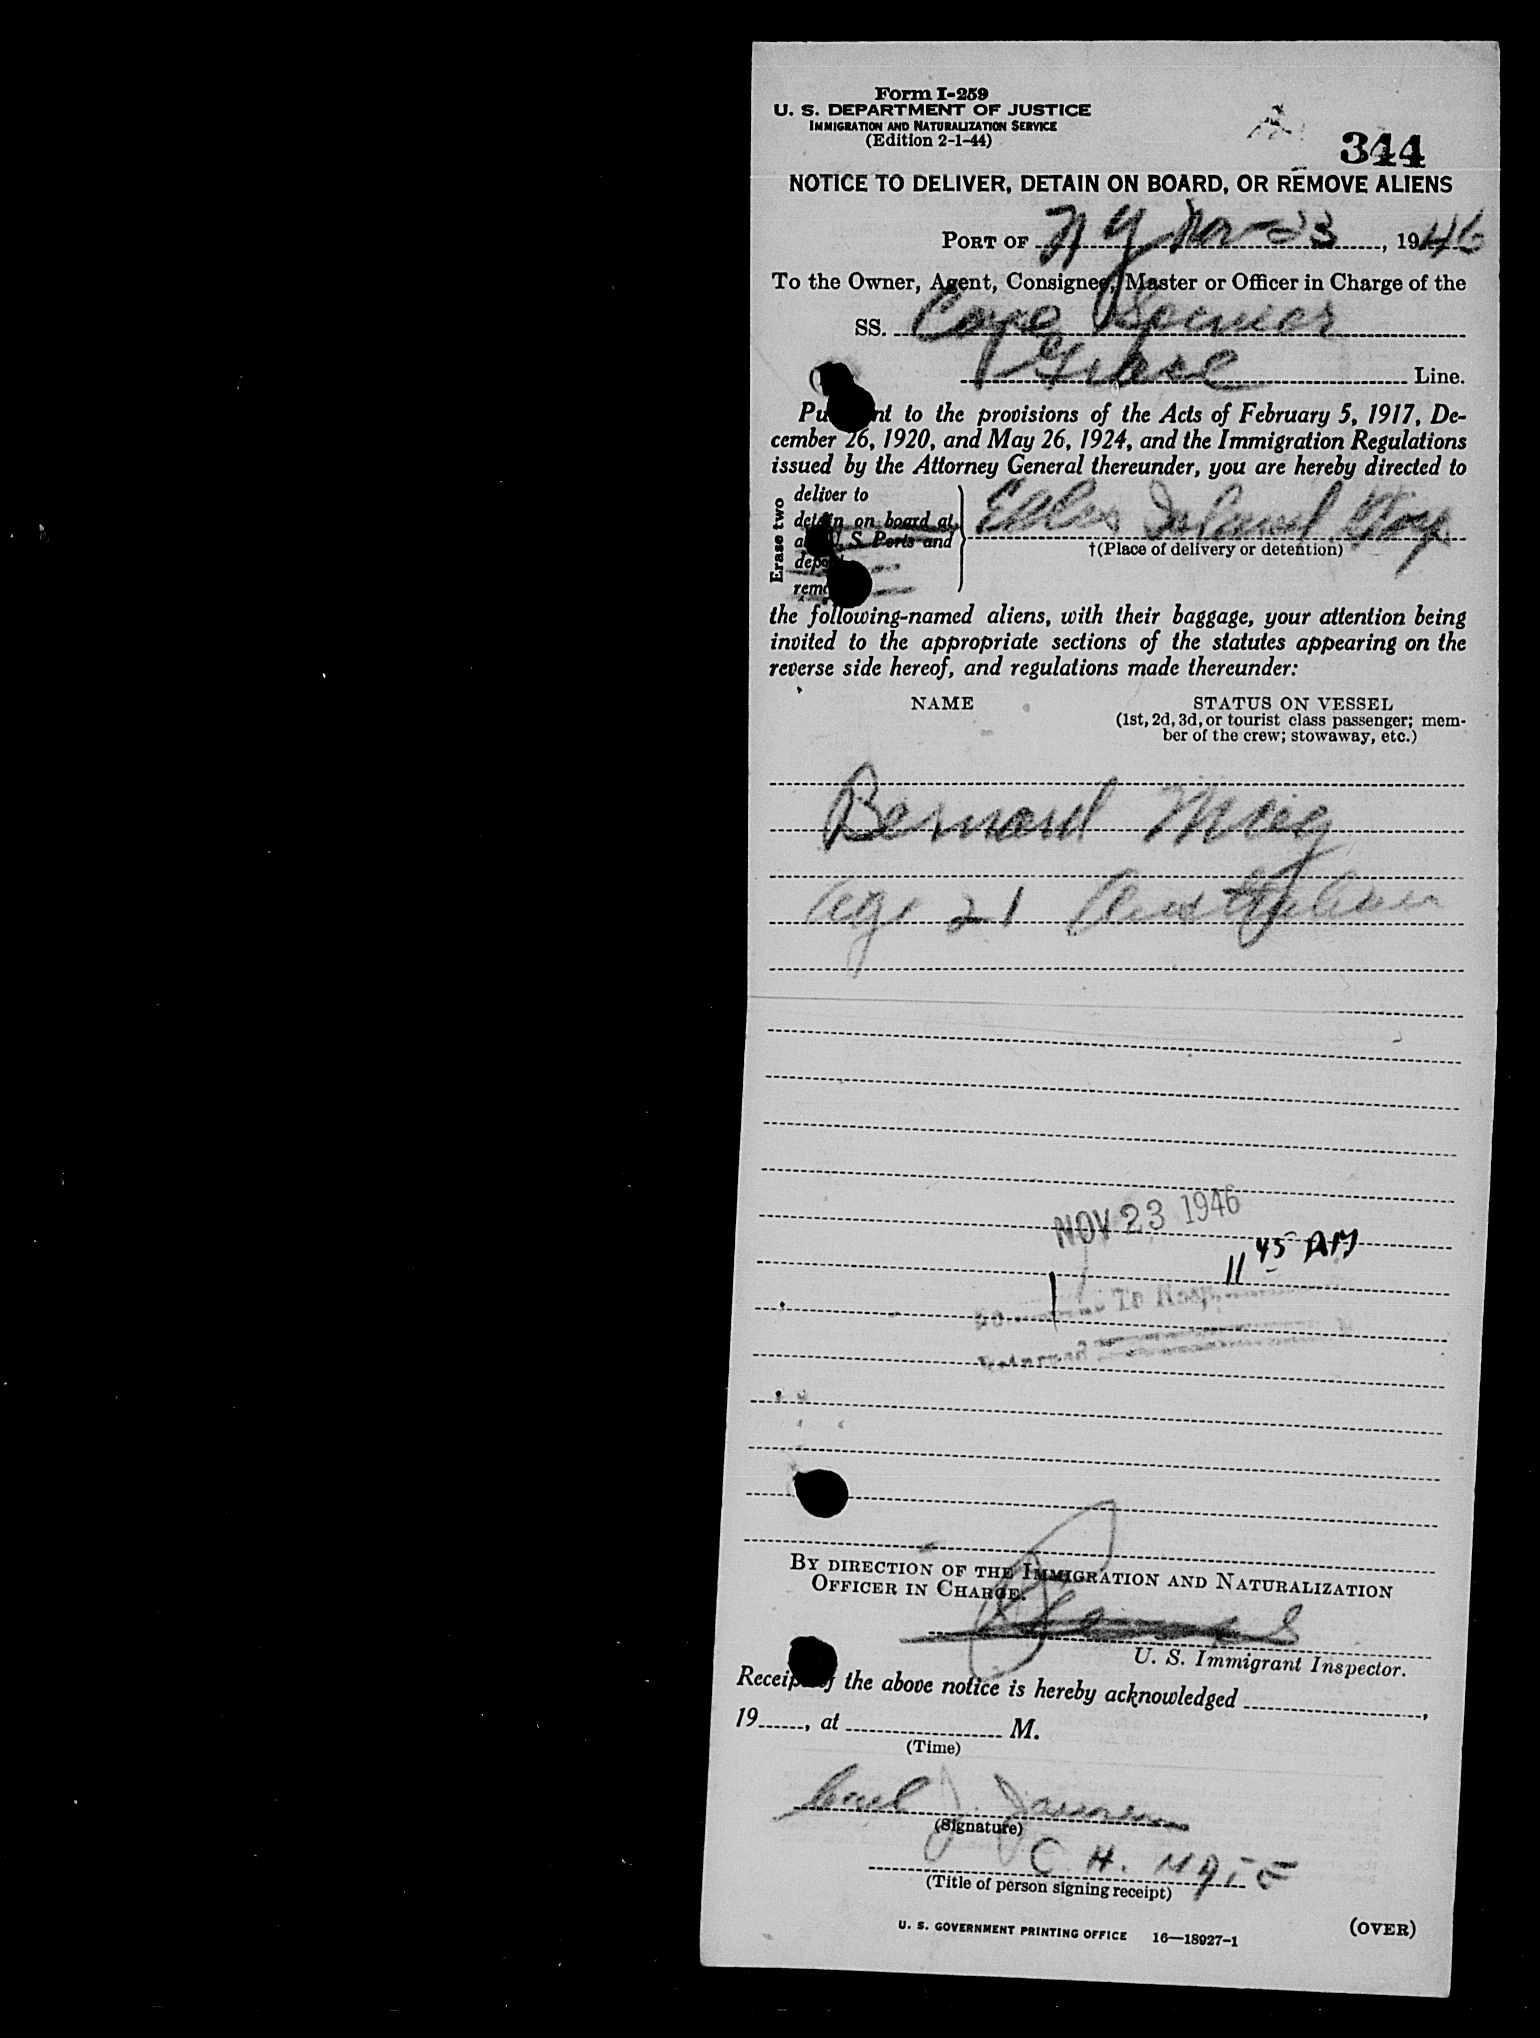 Form I-259
U. S. DEPARTMENT OF JUSTICE
IMMIGRATION AND NATURALIZATION SERVICE
(Edition 2-1-44)
344
NOTICE TO DELIVER, DETAIN ON BOARD, OR REMOVE ALIENS
PORT OF N Y Nov-23, 1946
To the Owner, Agent, Consignee, Master or Officer in Charge of the
SS. Cape
Line.
Pu nt to the provisions of the Acts of February 5, 1917, De-
cember 26, 1920, and May 26, 1924, and the Immigration Regulations
issued by the Attorney General thereunder, you are hereby directed to
Erase two
deliver to
detain on board at
S. Ports and
Ellis Island Hosp
†(Place of delivery or detention)
the following-named aliens, with their baggage, your attention being
invited to the appropriate sections of the statutes appearing on the
reverse side hereof, and regulations made thereunder:
NAME STATUS ON VESSEL
(1st, 2d, 3d, or tourist class passenger; mem-
ber of the crew; stowaway, etc.)
Bernard Moig
age 21 Australian
NOV 23 1946
11 45 AM
To Hosp.
Returned
BY DIRECTION OF THE IMMIGRATION AND NATURALIZATION
OFFICER IN CHARGE.
U. S. Immigrant Inspector.
Receipt of the above notice is hereby acknowledged ,
19 , at M.
(Time)
Carl J.
(Signature)
C. H. MATE
(Title of person signing receipt)
U. S. GOVERNMENT PRINTING OFFICE 16—18927-1
(OVER)